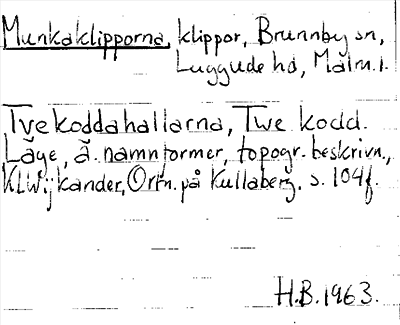 Munkaklipporna, klippor, Brunnby sn,
Luggude hd, Malm. l.
Tvekoddahallarna, Twe kodd.
Läge, ä. namnformer, topogr. beskrivn.,
KLWijkander, Ortn. på Kullaberg, s. 104f.
H.B. 1963.